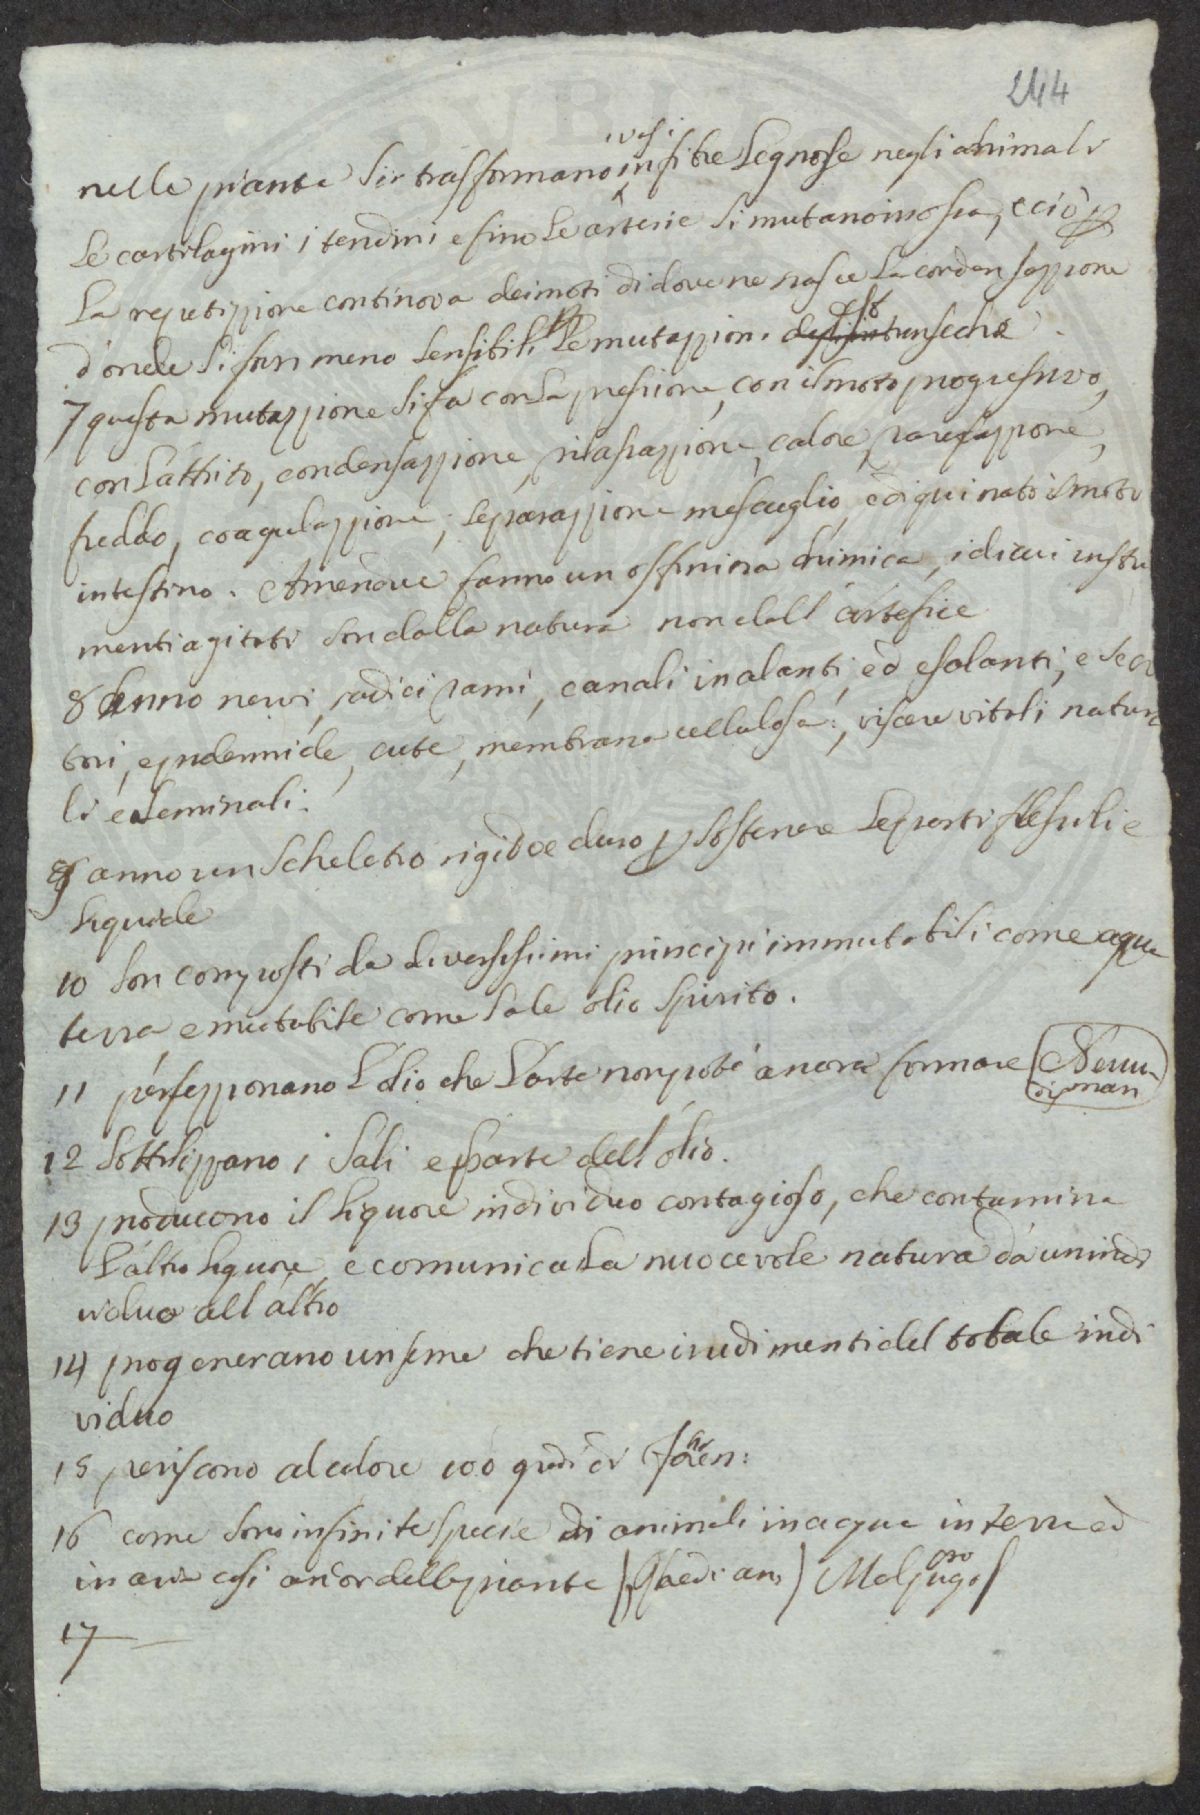 244
nelle piante si trasformano i vasi in fibre legnose negli animali
le cartilagini i tendini e fino le arterie si mutano in ossa, e ciò p
la repetizzione continova dei moti di dove ne nasce la condensazzione
d'onde si fan meno sensibili le mutazzioni intrinseche
7 questa mutazzione si fa con la pressione, con il moto progressivo,
con l'attrito, condensazzione, rilassazzione, calore, rarefazzione,
freddo, coagulazzione, separazzione mescuglio, e di qui nato il moto
intestino. Amendue fanno un offinina chimica, i di cui instru
menti agitati son dalla natura non dall' artefice
8 hanno nervi, radici rami, canali inalanti, ed esalanti, e secre
tori, epidermide, cute, membrana cellulosa, viscere vitali natura
li e seminali.
9 anno un scheletro rigido e duro p sostenere le parti flessili e
liquide
10 son composti da diversissimi principii immutabili come aqua
terra e mutabili come sale olio spirito.
11 perfezzionano l'olio che l'arte non potè ancora formare
12 sottilizzano i sali e parte dell'olio.
13 producono il liquore individuo contagioso, che contamina
l'altro liquore, e comunica la nuocevole natura da un indi
viduo all'altro
14 progenerano un seme che tiene i rudimenti del totale indi
viduo
15 periscono al calore 100 gradi di Fahren:
16 come sono infinite specie di animali in acqua in terra ed
in aria così ancor delle piante
17